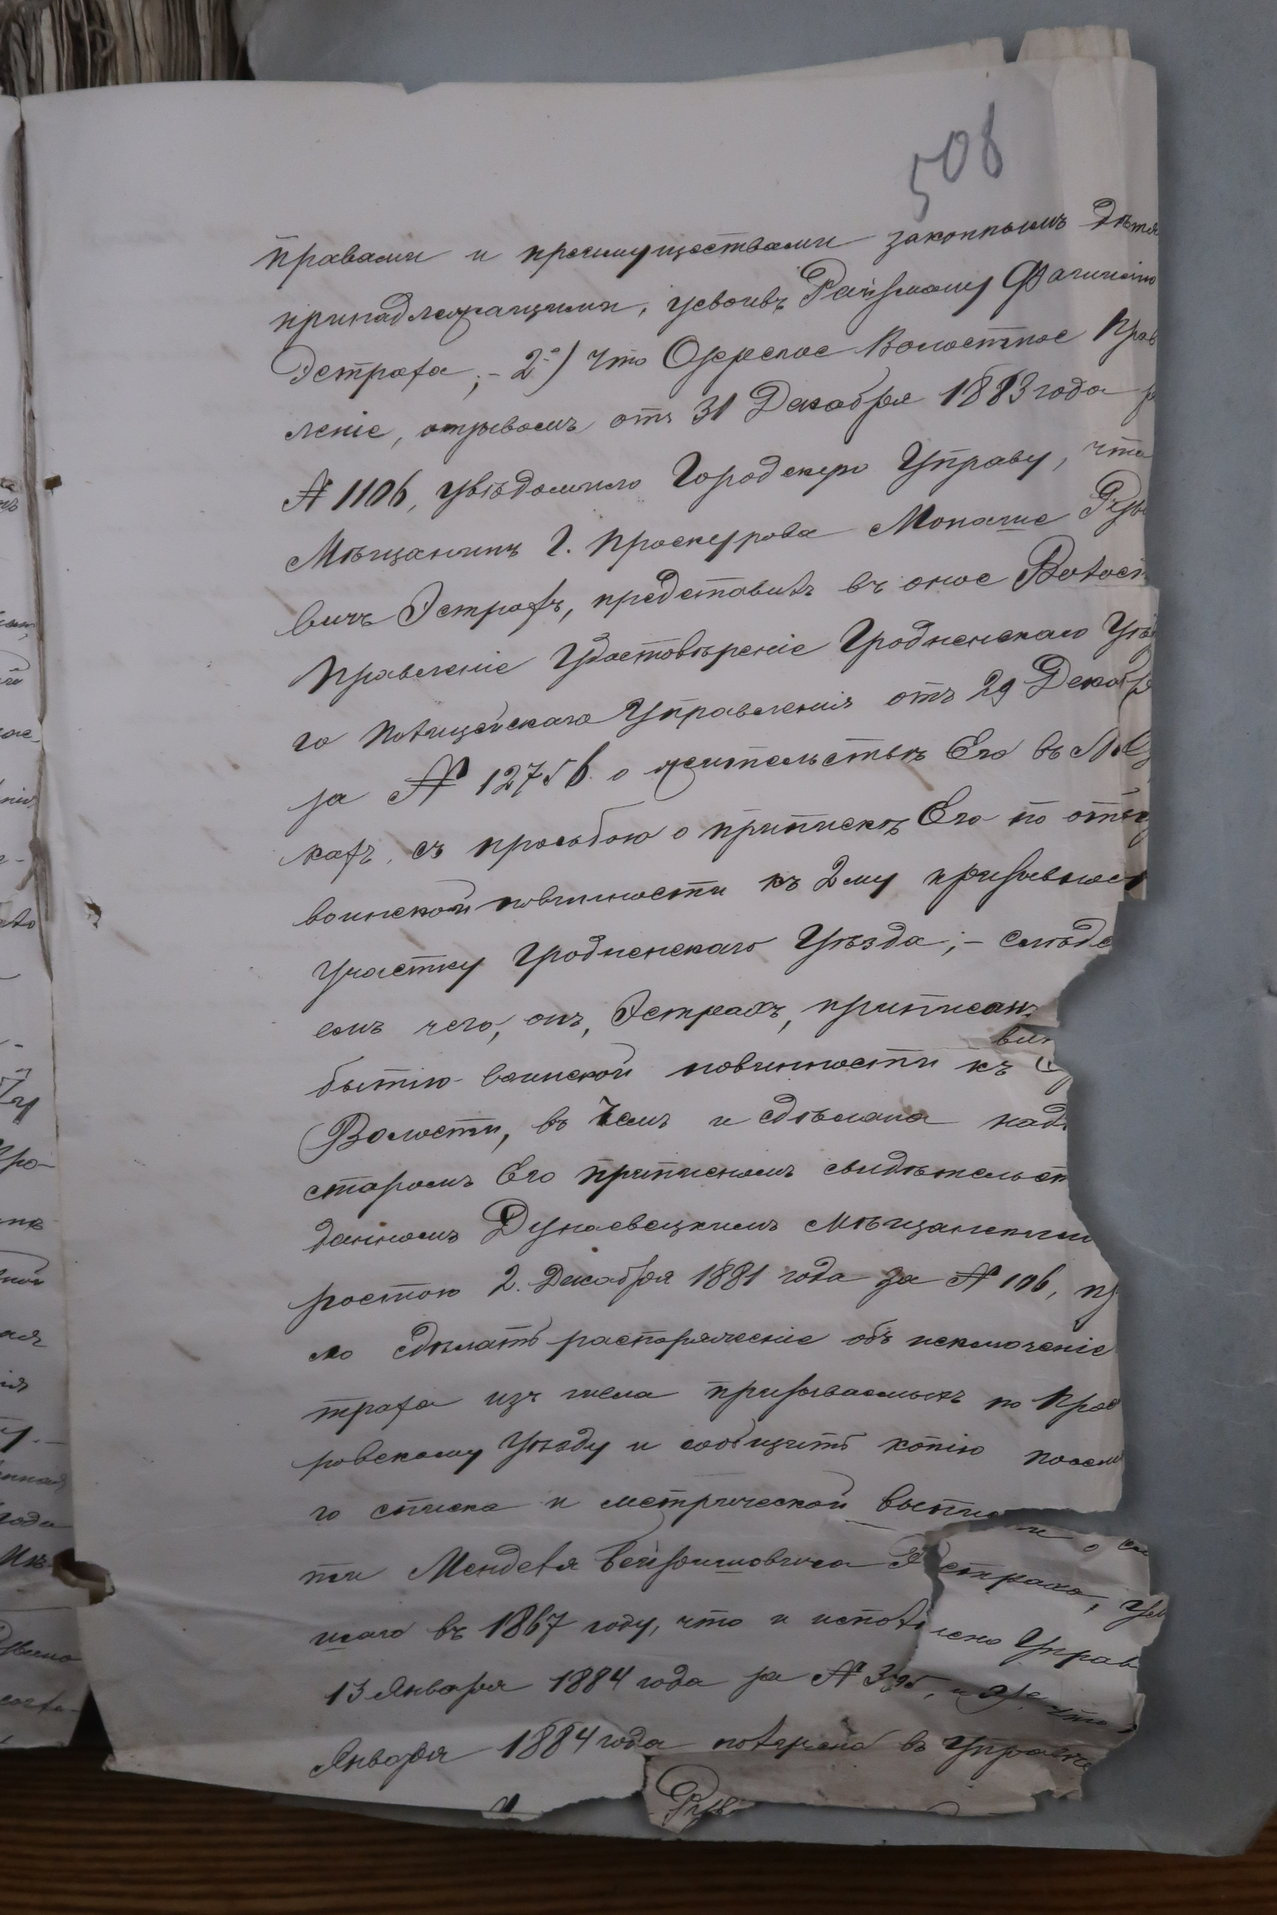 508
правами и преимуществами законнымъ дѣтя
принадлежащими, усвоивъ
Эстраха; - 2º) что Озерское Волостное Прав
леніе, отзывомъ отъ 31 Декабря 1883 года за
№ 1106, увѣдомило Городскую Управу, что
Мѣщанинъ г. Проскурова Монаше Рув
вичъ Эстрахъ, представилъ въ оное Волост
Правленіе Удостовѣреніе Гродненскаго Уѣзд
го Полицейскаго Управленія отъ 29 Декабр
за № 12756 о жительствѣ Его въ М. Оз
кахъ, съ просьбою о припискѣ Его по отбы
воинской повинности къ 2му призывном
участку Гродненскаго Уѣзда; - слѣдс
емъ чего, онъ, Эстрахъ, приписанъ
бытію воинской повинности къ
Волости, въ чемъ и сдѣлана над
старомъ Его приписномъ свидѣтельст
данномъ Дунаевецкимъ Мѣщанским
ростою 2. Декабря 1881 года за № 106, пр
ло сдѣлать распоряженіе объ исключеніе
траха изъ числа призываемыхъ по Прос
ровскому Уѣзду и сообщить копію посем
го списка и метрической выписки о см
ти Менделя Эстраха, ум
шаго въ 1867 году, что и исполнено Управ
13 Января 1884 года за № и 3º что
Января 1884 года получена въ Управѣ